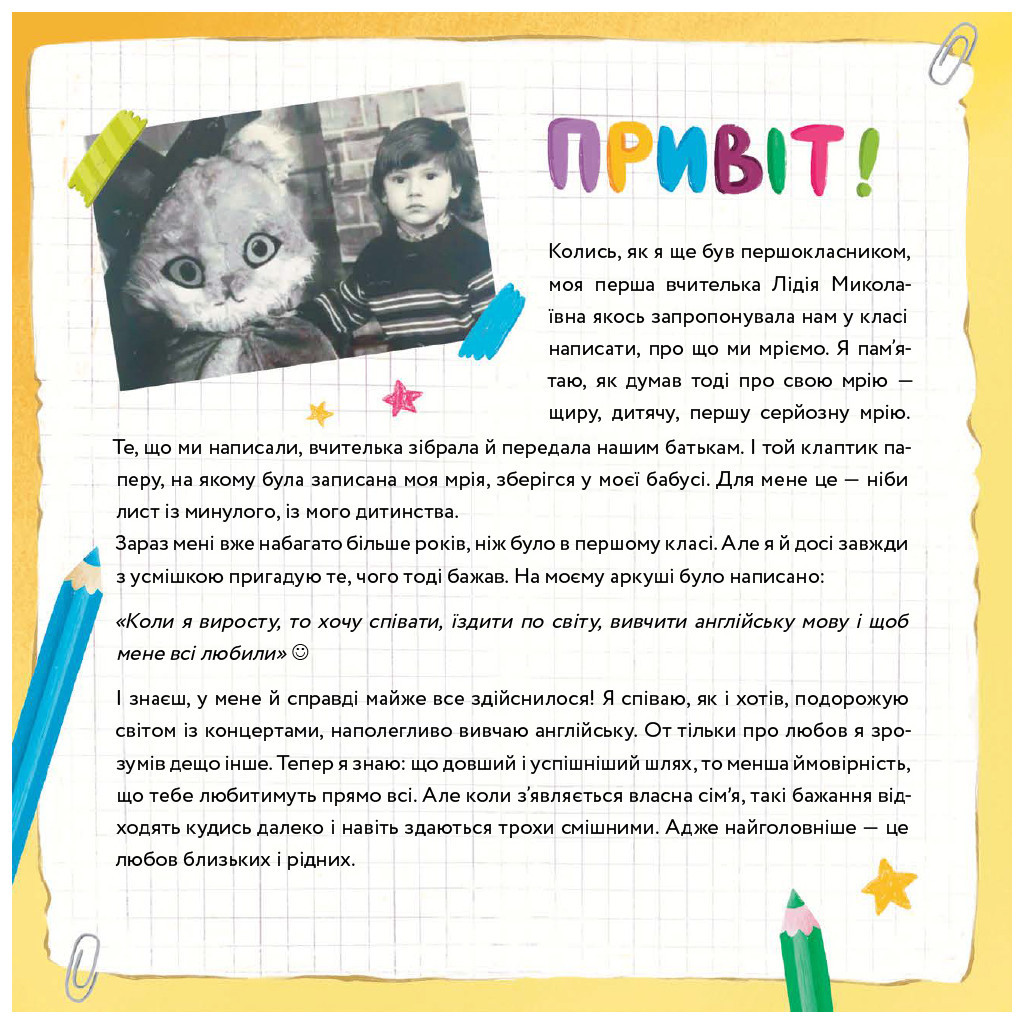 ПРИВІТ!
Колись, як я ще був першокласником,
моя перша вчителька Лідія Микола-
ївна якось запропонувала нам у класі
написати, про що ми мріємо. Я пам’я-
таю, як думав тоді про свою мрію —
щиру, дитячу, першу серйозну мрію.
Те, що ми написали, вчителька зібрала й передала нашим батькам. І той клаптик па-
перу, на якому була записана моя мрія, зберігся у моєї бабусі. Для мене це — ніби
лист із минулого, із мого дитинства.
Зараз мені вже набагато більше років, ніж було в першому класі. Але я й досі завжди
з усмішкою пригадую те, чого тоді бажав. На моєму аркуші було написано:
«Коли я виросту, то хочу співати, їздити по світу, вивчити англійську мову і щоб
мене всі любили» ☺
І знаєш, у мене й справді майже все здійснилося! Я співаю, як і хотів, подорожую
світом із концертами, наполегливо вивчаю англійську. От тільки про любов я зро-
зумів дещо інше. Тепер я знаю: що довший і успішніший шлях, то менша ймовірність,
що тебе любитимуть прямо всі. Але коли з’являється власна сім’я, такі бажання від-
ходять кудись далеко і навіть здаються трохи смішними. Адже найголовніше — це
любов близьких і рідних.